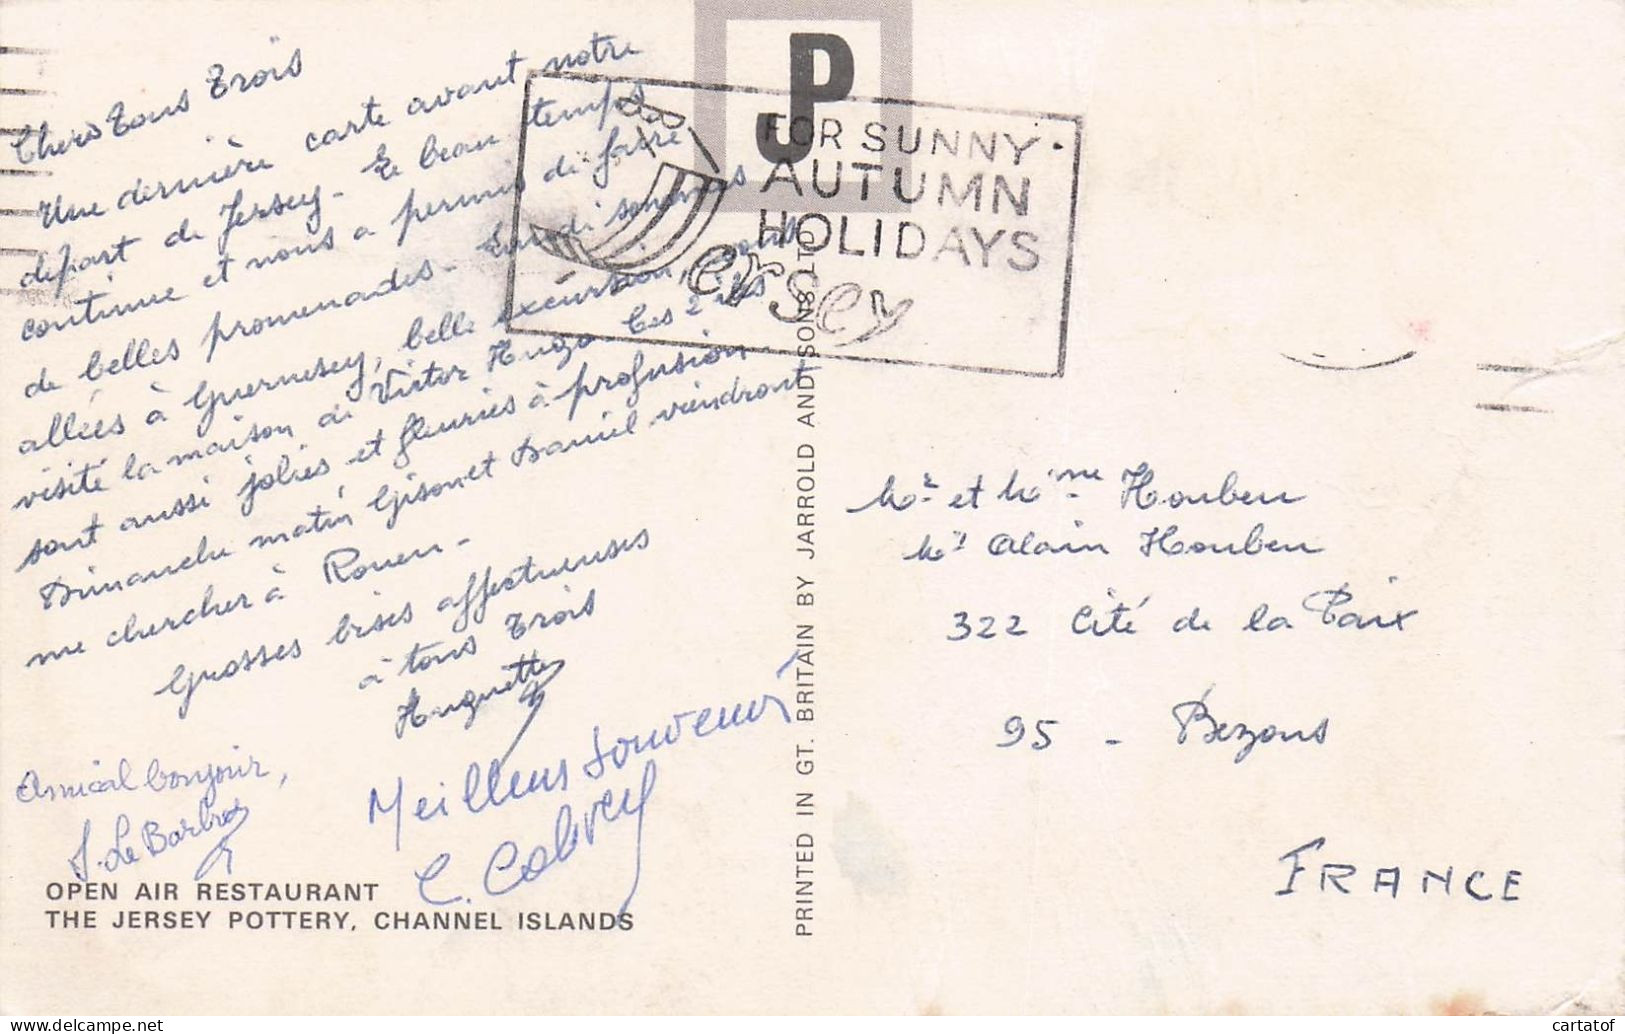 Chers Tous Trois
Une dernière carte avant notre
départ de Jersey - Le beau temps
continue et nous a permis de faire
de belles promenades - sommes
allées à Guernesey, belle excursion, avons
visité la maison de Victor Hugo - Les 2 îles
sont aussi jolies et fleuries à profusion
Dimanche matin et Daniel viendront
me chercher à Rouen -
Grosses bises affectueuses
à tous Trois
Huguette
Amical bonjour,
Meilleurs Souvenirs
OPEN AIR RESTAURANT
THE JERSEY POTTERY, CHANNEL ISLANDS
JP
FOR SUNNY
AUTUMN
HOLIDAYS
Jersey
PRINTED IN GT. BRITAIN BY JARROLD AND SONS LTD
Mr et Mme Houben
Mr Alain Houben
322 Cité de la Paix
95 - Bezons
FRANCE
cartatof